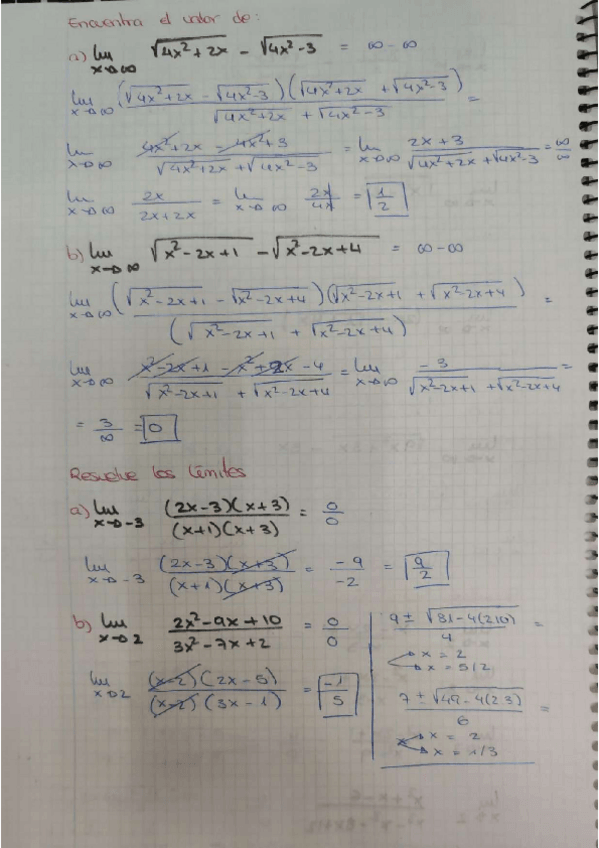 Encuentra el valor de:
a) lim x→∞ √(4x²+2x) - √(4x²-3) = ∞-∞
lim x→∞ (√(4x²+2x) - √(4x²-3))(√(4x²+2x) + √(4x²-3)) / (√(4x²+2x) + √(4x²-3)) =
lim x→∞ (4x²+2x - 4x²+3) / (√(4x²+2x) + √(4x²-3)) = lim x→∞ (2x+3) / (√(4x²+2x) + √(4x²-3)) = ∞/∞
lim x→∞ 2x/(2x+2x) = lim x→∞ 2x/4x = 1/2
b) lim x→∞ √(x²-2x+1) - √(x²-2x+4) = ∞-∞
lim x→∞ (√(x²-2x+1) - √(x²-2x+4))(√(x²-2x+1) + √(x²-2x+4)) / (√(x²-2x+1) + √(x²-2x+4)) =
lim x→∞ (x²-2x+1 - x²+2x-4) / (√(x²-2x+1) + √(x²-2x+4)) = lim x→∞ -3 / (√(x²-2x+1) + √(x²-2x+4)) =
= 3/∞ = 0
Resuelve los límites
a) lim x→-3 (2x-3)(x+3) / (x+1)(x+3) = 0/0
lim x→-3 (2x-3)(x+3) / (x+1)(x+3) = -9/-2 = 9/2
b) lim x→2 (2x²-9x+10) / (3x²-7x+2) = 0/0
lim x→2 (x-2)(2x-5) / (x-2)(3x-1) = -1/5
9 ± √(81-4(2·10)) / 4 =
x = 2
x = 5/2
7 ± √(49-4(2·3)) / 6 =
x = 2
x = 1/3